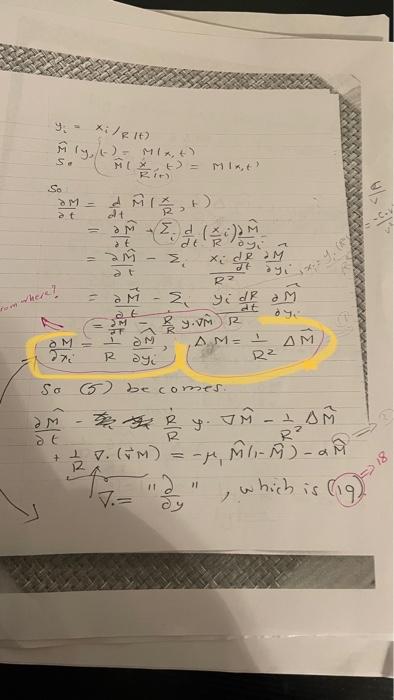 yᵢ = xᵢ/R(t)
M̂(y,t) = M(x,t)
So M̂(x/R(t), t) = M(x,t)
So
∂M/∂t = d/dt M̂(x/R, t)
= ∂M̂/∂t + Σᵢ d/dt (xᵢ/R) ∂M̂/∂yᵢ
= ∂M̂/∂t - Σᵢ xᵢ/R² dR/dt ∂M̂/∂yᵢ
= ∂M̂/∂t - Σᵢ yᵢ/R dR/dt ∂M̂/∂yᵢ
where?
= ∂M̂/∂t - Ṙ/R y.∇M̂
∂M/∂xᵢ = 1/R ∂M̂/∂yᵢ , ΔM = 1/R² ΔM̂
So (5) becomes
∂M̂/∂t - Ṙ/R y. ∇M̂ - 1/R² ΔM̂
+ 1/R ∇.(v̂M) = -μ₁ M̂(1-M̂) - αM̂
∇. = "∂/∂y" , which is (19) ⇒ 18